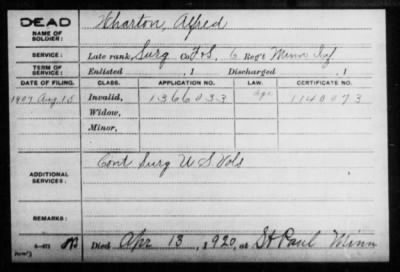 DEAD
NAME OF SOLDIER:
Wharton, Alfred
SERVICE:
Late rank, Surg Co. F&S, 6 Reg't Minn Inf
TERM OF SERVICE:
Enlisted , 1 Discharged , 1
DATE OF FILING. CLASS. APPLICATION NO. LAW. CERTIFICATE NO.
1907 Aug 15 Invalid, 1366033 Age 1140073
Widow,
Minor,
ADDITIONAL SERVICES:
Cont Surg U S Vols
REMARKS:
Died Apr 13, 1920, at St Paul Minn